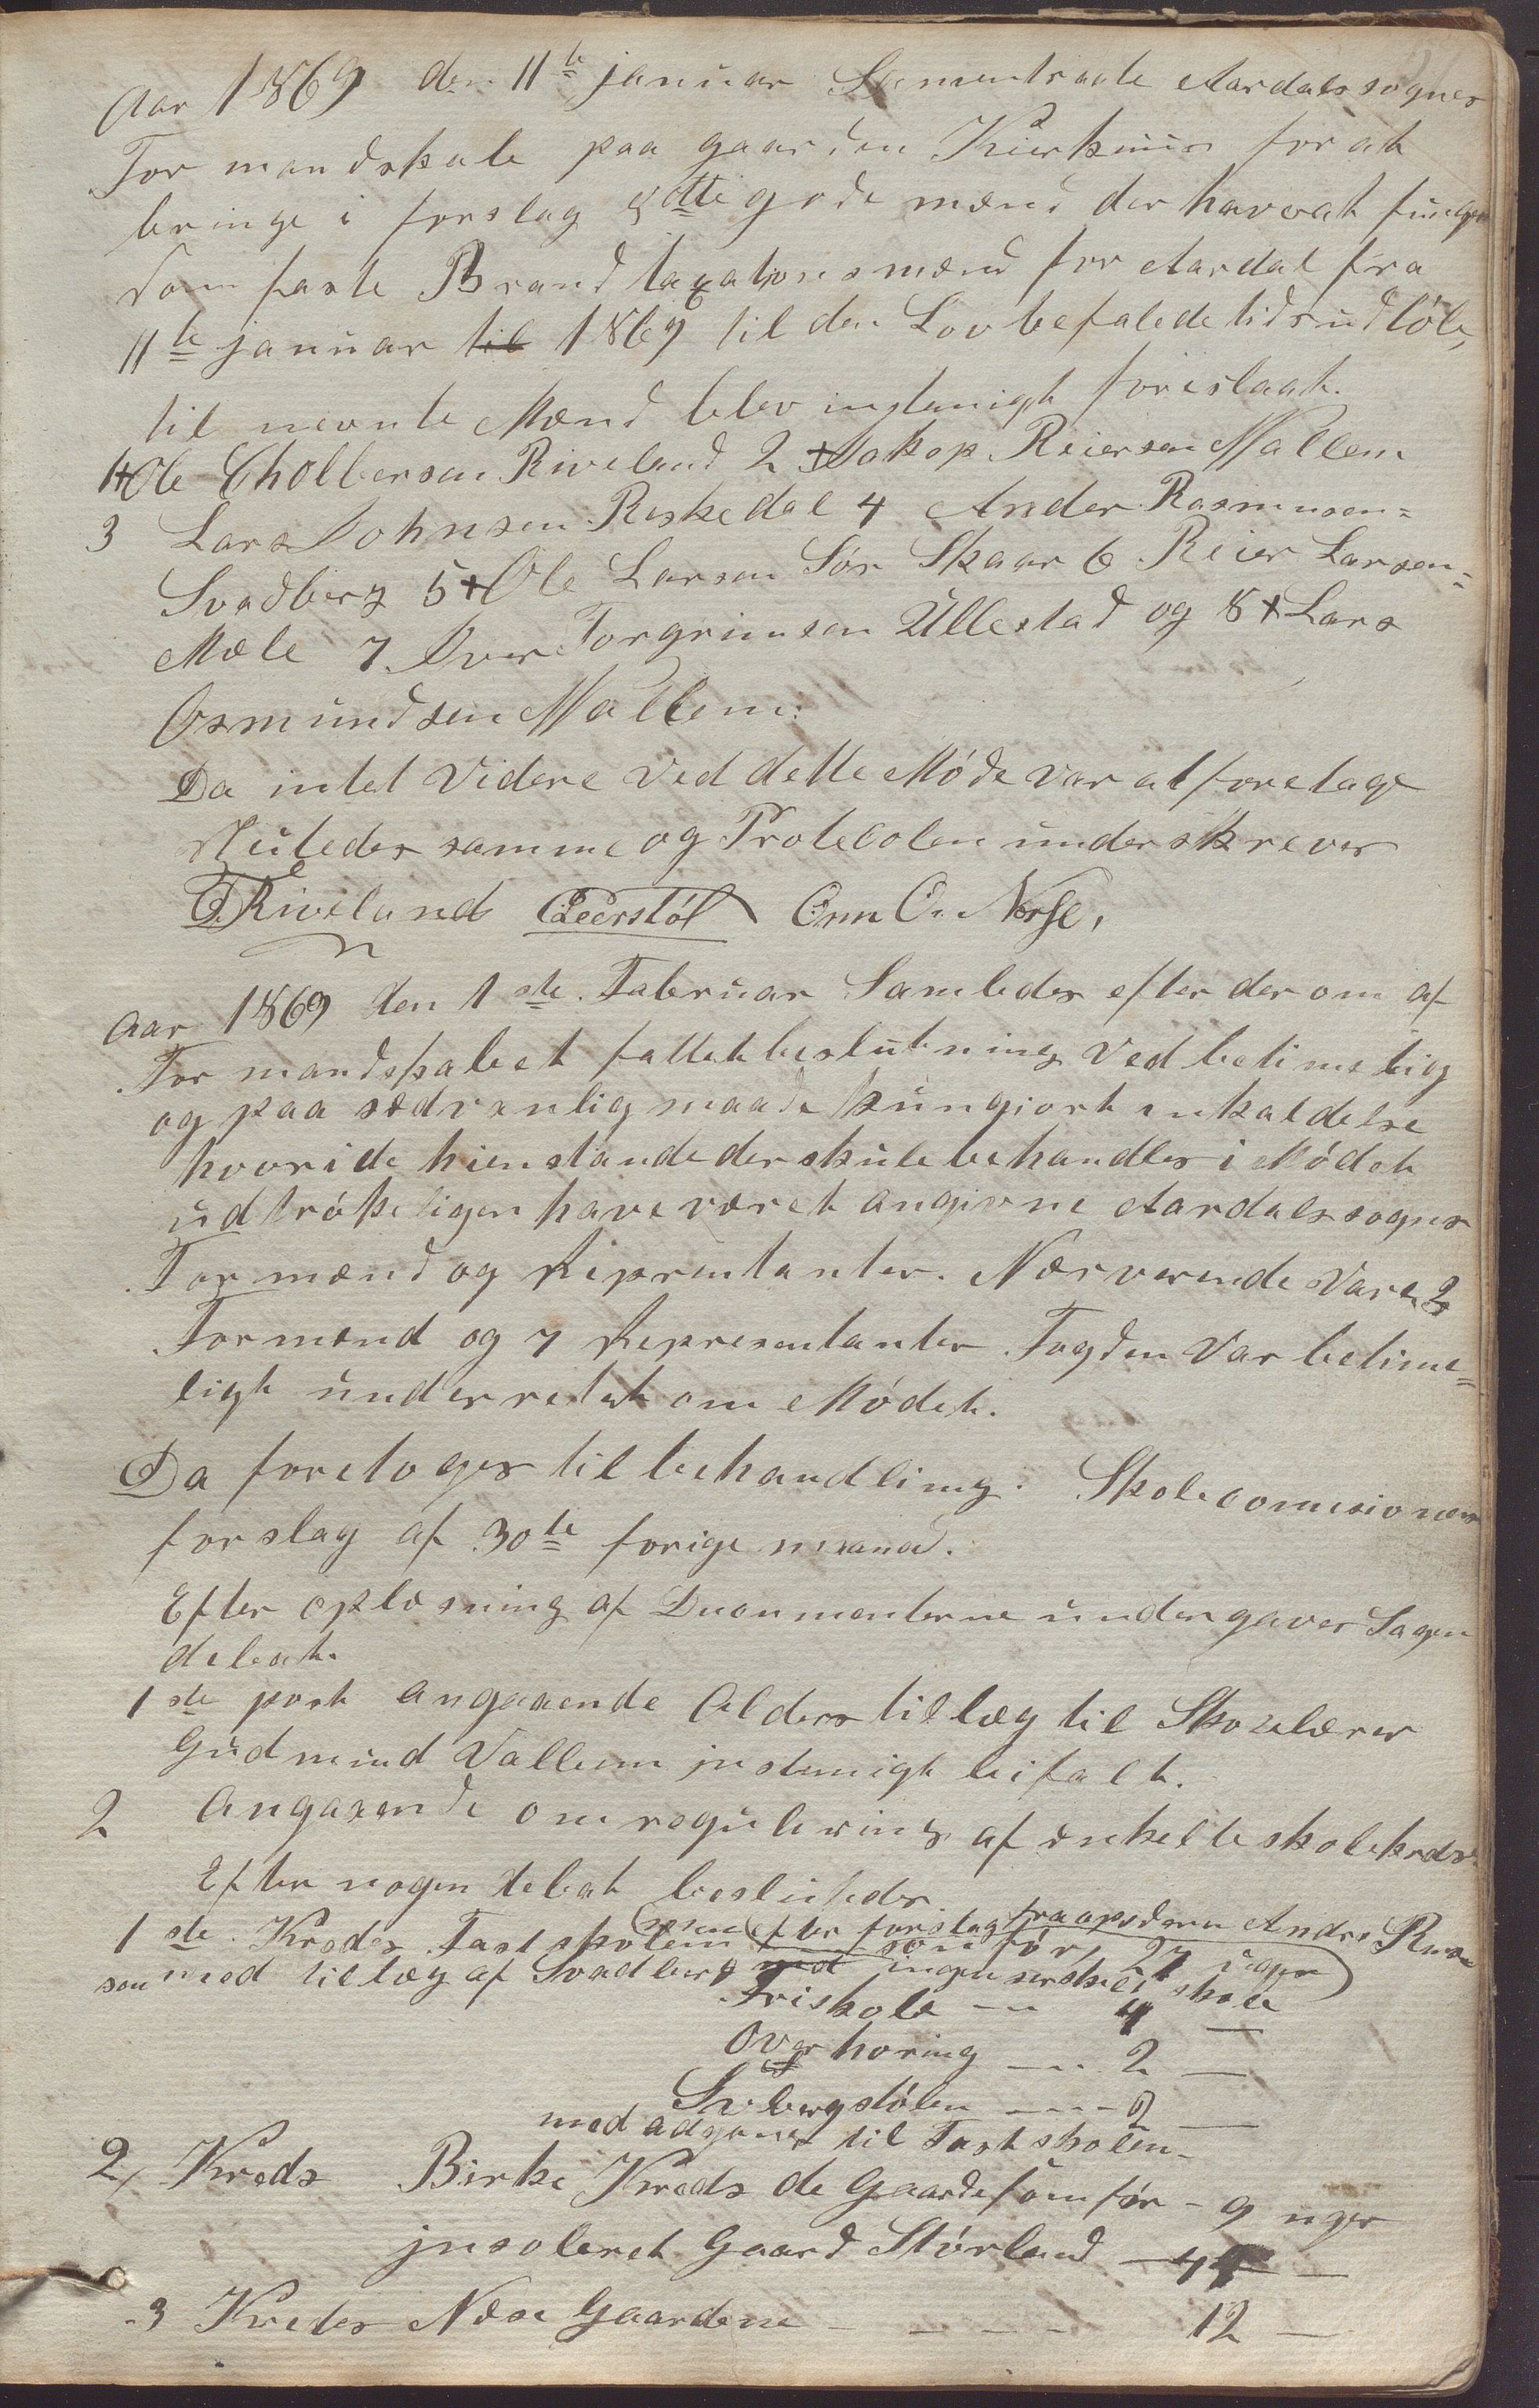 Aar 1869 den 11te januar Samentraate Aardals sognes
Formandskale paa gaarden Kierhuus for at
bringe i forslag 8 otte gode mænd der havvat funger
som faste Brandtaxationsmænd for Aardal fra
11te januar til 1869 til den Lov befalede tids udløb,
til nævnte Mænd blev instemigt foreslaat.
1+ Ole Tholbersen Riveland 2 + Jakop Reiersen Vallem
3 Lars Johnsen Riskedal 4 Ander Rasmusen=
Svadberg 5+ Ole Larsen Sør Skaar 6 Reier Larsen=
Mæle 7 Iver Torgrimsen Ullestad og 8+ Lars
Osmundsen Vallem.
Da intet Videre Ved dette Møde var at foretage
sluttedes samme og Protecolen underskreves
Riveland Onn On Nesse,
Aar 1869 den 1ste Februar Samledes efter derom af
Formandskabet fattet beslutning Ved betimelig
og paa sædvanlig maade kungiort inkaldelse
hvori de hienstande der skule behandles i Mødet
udtrøkeligen have været angivne Aardals sogns
Formænd og Reprentanter. Nærverende Vare 2
Formænd og 7 Representanter Fogden Var betime=
ligt underretet om Mødet.
Da foretoges til behandling. Skolecomisionens
forslag af 30te forige maaned.
Efter oplæsning af Ducumenterne undergaves Sagen
debat.
1ste post angaaende Alders tillæg til Skolelærer
Gudmund Vallem instemigt bifalt.
2 Angaaende omregulering af enkelte skolekreds
Efter nogen debat besluttedes.
1ste Kreds Fastskolen som før 27 uger
efter forslag fra opsderen Anders Rasmu
sen med tillæg af Svadberg med ingen særskelt skole
Friskole — 4 —
Overhøring — 2 —
Svbergstølen — 2 —
med adgang til Fastskolen
2 Kreds Birke Kreds de Gaarde som før - 9 uger
jnsoleret Gaard Størland — 4 —
3 Kreds Nese Gaardene — — — 12 —